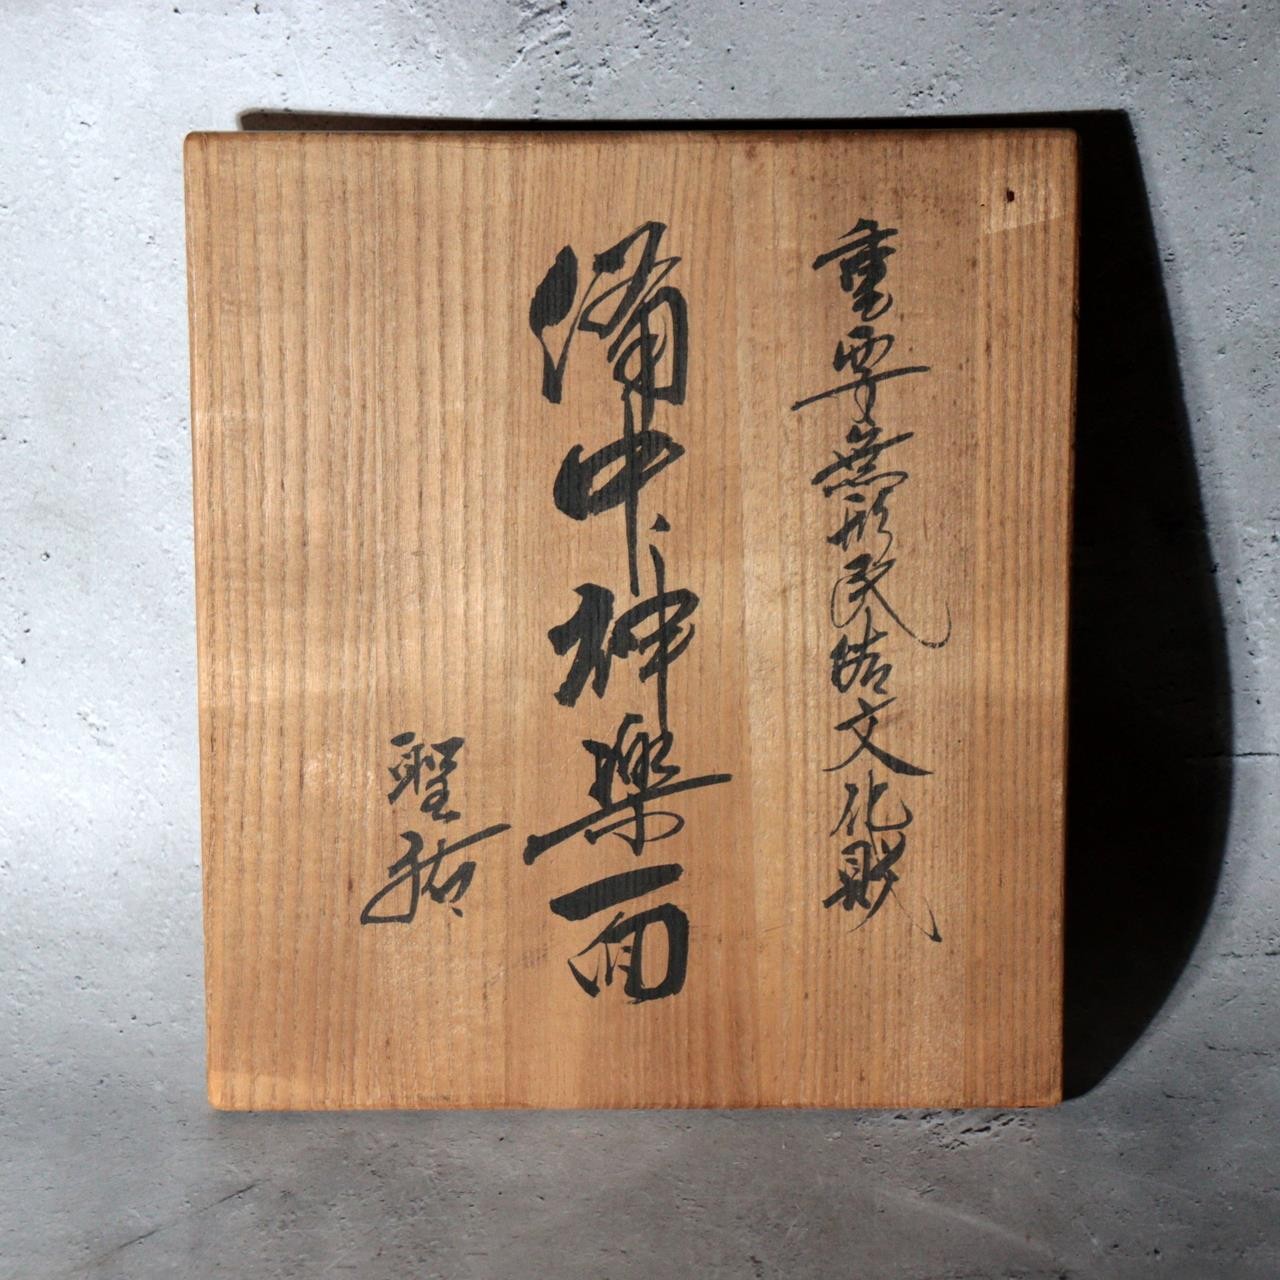 重要無形民俗文化財
備中神楽面
聖祐